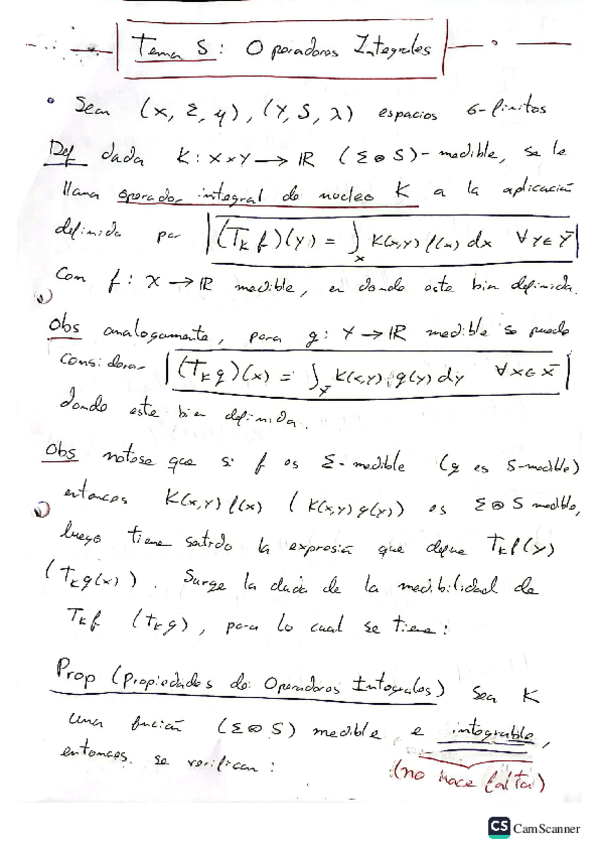 Tema 5: Operadores Integrales
• Sean (X, Σ, μ), (Y, S, λ) espacios σ-finitos
Def dada K: X×Y → ℝ (Σ⊗S)-medible, se le
llama operador integral de nucleo K a la aplicación
definida por (T_K f)(y) = ∫_X K(x,y) f(x) dx ∀ y ∈ Y
Con f: X → ℝ medible, en donde este bien definida.
Obs analogamente, para g: Y → ℝ medible se puede
Considerar (T_K g)(x) = ∫_Y K(x,y) g(y) dy ∀ x ∈ X
donde este bien definida.
Obs notese que si f es Σ-medible (g es S-medible)
entonces K(x,y) f(x) (K(x,y) g(y)) es Σ⊗S medible,
luego tiene sentido la expresión que define T_K f(y)
(T_K g(x)). Surge la duda de la medibilidad de
T_K f (T_K g), para lo cual se tiene:
Prop (Propiedades de Operadores Integrales) Sea K
una función (Σ⊗S) medible, e integrable,
entonces se verifican:
(no hace falta)
CS CamScanner